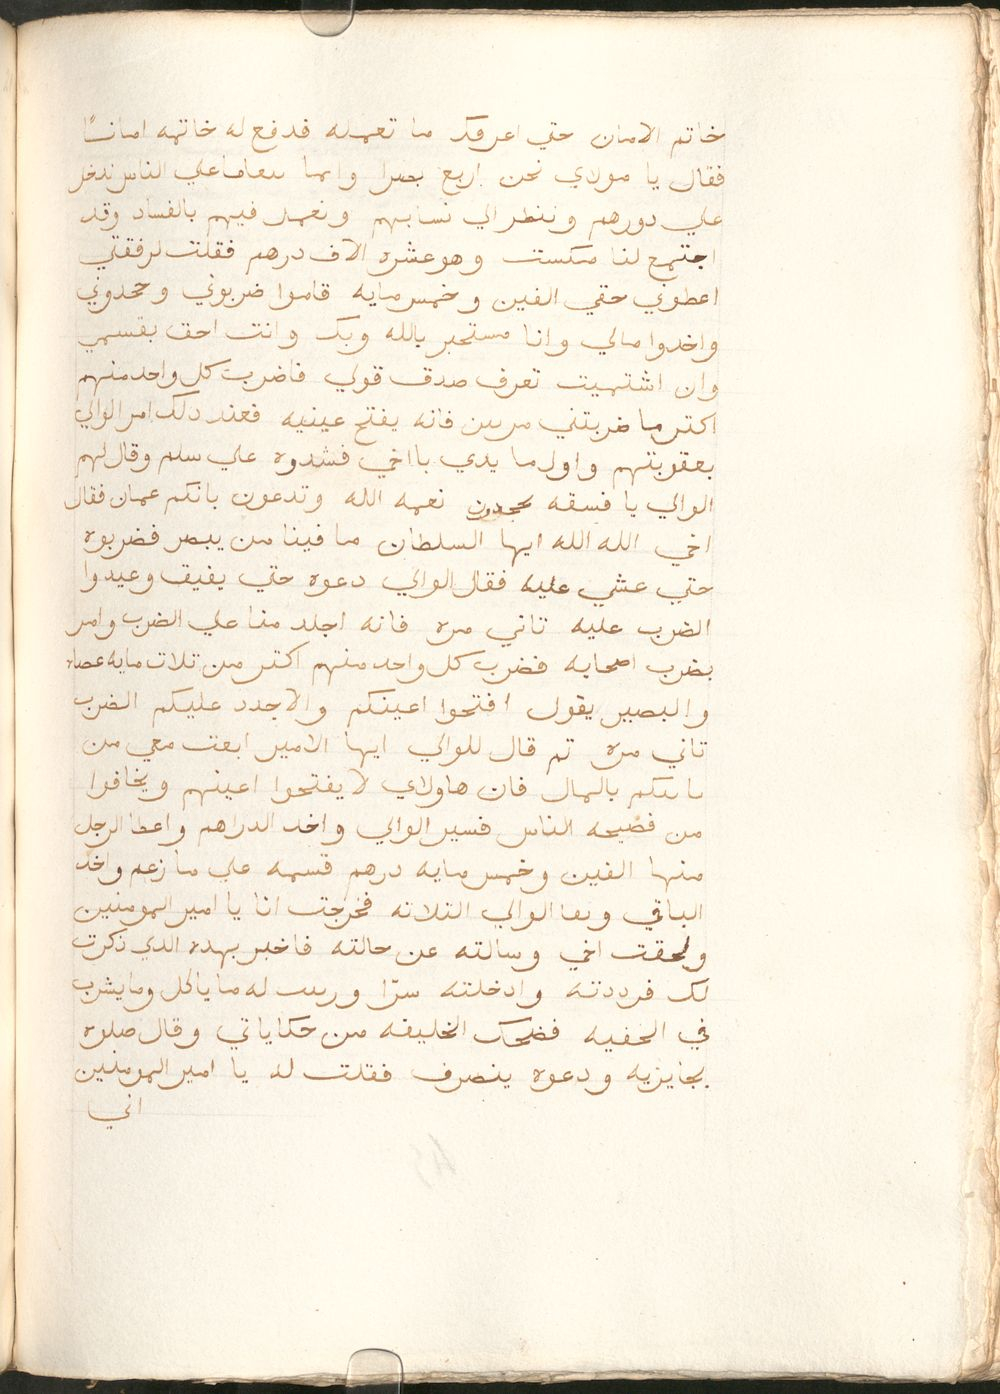 خاتم الامان حتي اعرفك ما تعمله فدفع له خاتمه امانًا
فقال يا مولاي نحن اربع بصرا وانما نتعاما علي الناس ندخل
علي دورهم وننظر الي نسايهم ونعمد فيهم بالفساد وقد
اجتمع لنا مكست وهو عشره الاف درهم فقلت لرفقتي
اعطوني حقي الفين وخمس مايه قاموا ضربوني وجحدوني
واخدوا مالي وانا مستجير بالله وبك وانت احق بقسمي
وان اشتهيت تعرف صدق قولي فاضرب كل واحد منهم
اكتر ما ضربتني مرتين فانه يفتح عينيه فعند دلك امر الوالي
بعقوبتهم واول ما بدي باخي فشدوه علي سلم وقال لهم
الوالي يا فسقه تجحدون نعمه الله وتدعون بانكم عميان فقال
اخي الله الله ايها السلطان ما فينا من يبصر فضربوه
حتي غشي عليه فقال الوالي دعوه حتي يفيق وعيدوا
الضرب عليه تاني مره فانه اجلد منا علي الضرب وامر
بضرب اصحابه فضرب كل واحد منهم اكتر من تلات مايه عصاه
والبصير يقول افتحوا اعينكم والا جدد عليكم الضرب
تاني مره تم قال للوالي ايها الامير ابعت معي من
ياتيكم بالمال فان هاولاي لا يفتحوا اعينهم ويخافوا
من فضيحه الناس فسير الوالي واخد الدراهم واعطا الرجل
منها الفين وخمس مايه درهم قسمه علي ما زعم واخد
الباقي ونفا الوالي التلاته فخرجت انا يا امير المومنين
ولحقت اخي وسالته عن حالته فاخبر بهده الدي ذكرت
لك فرددته وادخلته سرًا ورتبت له ما ياكل وما يشرب
في الخفيه فضحك الخليفه من حكاياتي وقال صلوه
بجايزيه ودعوه ينصرف فقلت له يا امير المومنين
اني